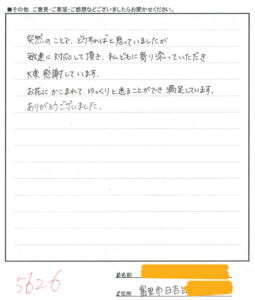 ■その他 ご意見・ご要望・ご感想などございましたらお聞かせください。
突然のことで、どうすればと思っていましたが
敏速に対応して頂き、私どもに寄り添っていただき
大変感謝しています。
お花にかこまれて、ゆっくりと送ることができ満足しています。
ありがとうございました。
5626
お名前
ご住所 富里市日吉台